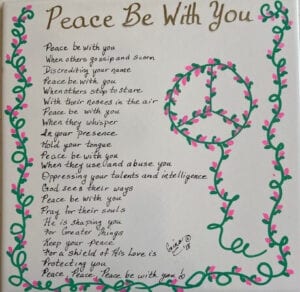 Peace Be With You
Peace be with you
When others gossip and scorn
Discrediting your name
Peace be with you
When others stop to stare
With their noses in the air
Peace be with you
When they whisper
In your presence
Hold your tongue
Peace be with you
When they use and abuse you
Oppressing your talents and intelligence
God sees their ways
Peace be with you
Pray for their souls
He is shaping you
For Greater Things
Keep your peace
For a shield of His Love is
Protecting you
Peace, Peace, Peace be with you
©
'18